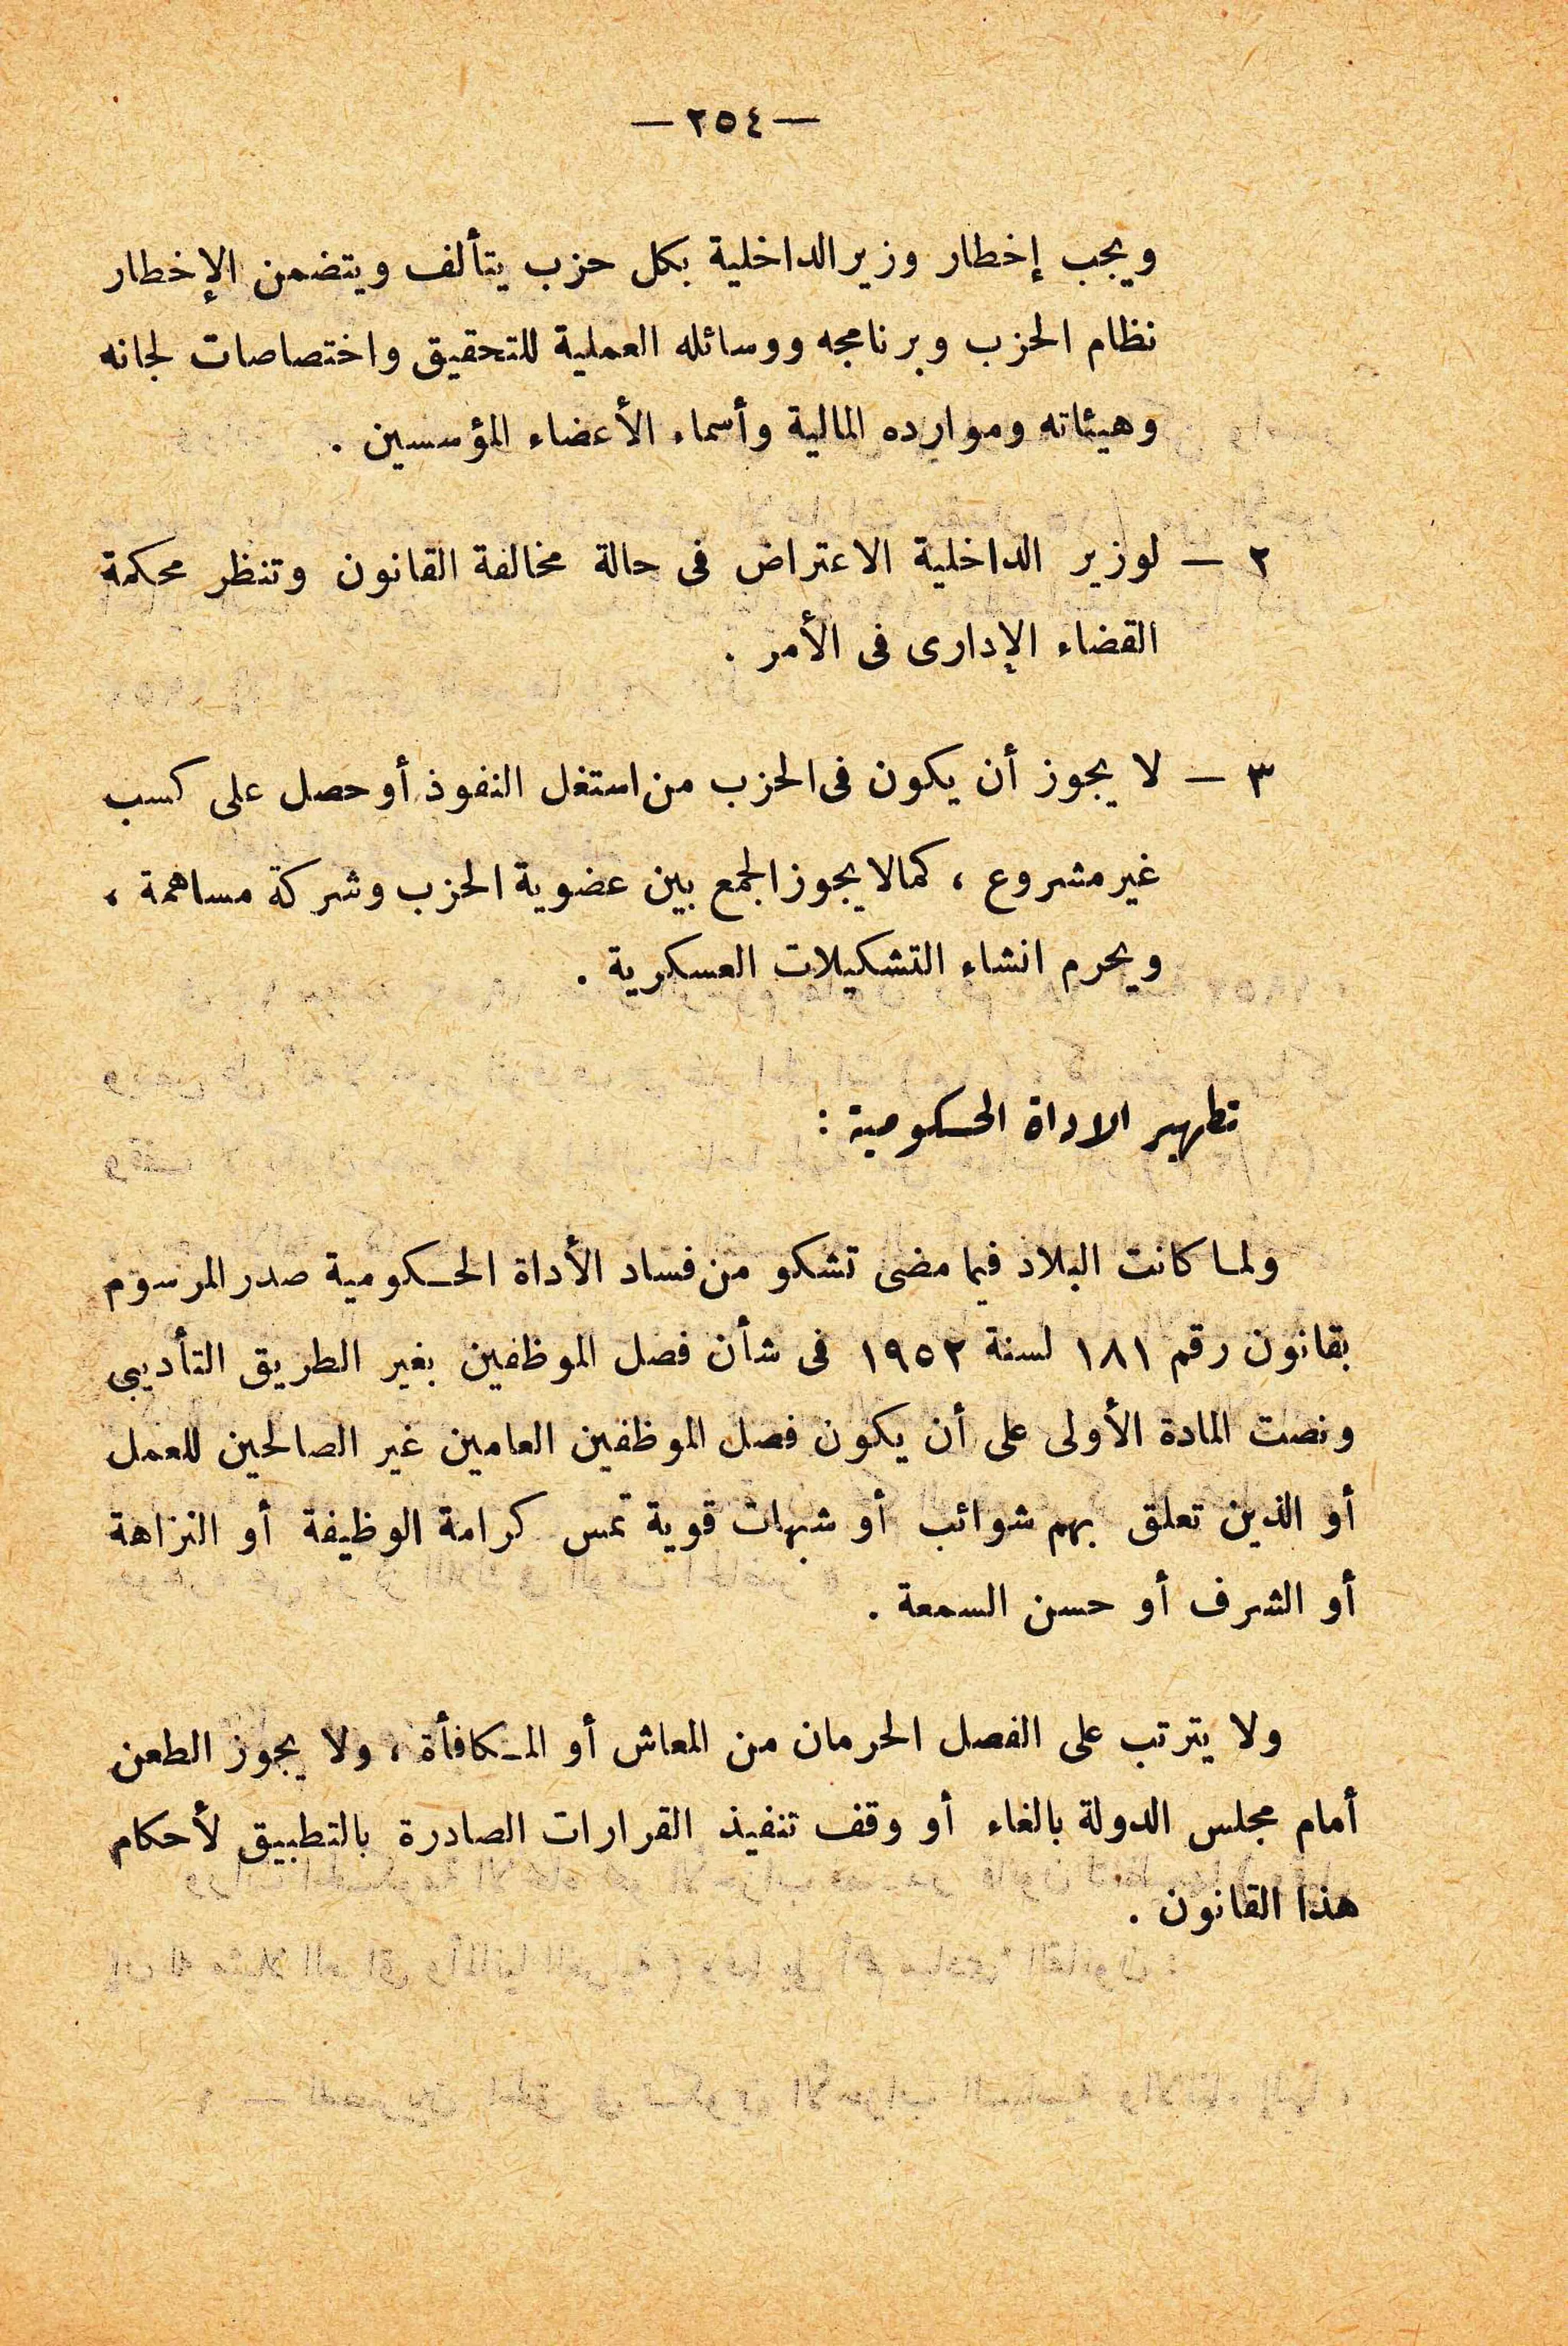 — ٢٥٤ —
ويجب إخطار وزير الداخلية بكل حزب يتألف ويتضمن الإخطار
نظام الحزب وبرنامجه ووسائله العملية للتحقيق واختصاصات لجانه
وهيئاته وموارده المالية وأسماء الأعضاء المؤسسين .
٢ — لوزير الداخلية الاعتراض فى حالة مخالفة القانون وتنظر محكمة
القضاء الإدارى فى الأمر .
٣ — لا يجوز أن يكون فى الحزب من استغل النفوذ أو حصل على كسب
غير مشروع ، كما لا يجوز الجمع بين عضوية الحزب وشركة مساهمة ،
ويحرم انشاء التشكيلات العسكرية .
تطهير الاداة الحكومية :
ولما كانت البلاد فيما مضى تشكو من فساد الأداة الحكومية صدر المرسوم
بقانون رقم ١٨١ لسنة ١٩٥٢ فى شأن فصل الموظفين بغير الطريق التأديبى
ونصت المادة الأولى على أن يكون فصل الموظفين العامين غير الصالحين للعمل
أو الذين تعلق بهم شوائب أو شبهات قوية تمس كرامة الوظيفة أو النزاهة
أو الشرف أو حسن السمعة .
ولا يترتب على الفصل الحرمان من المعاش أو المكافأة ، ولا يجوز الطعن
أمام مجلس الدولة بالغاء أو وقف تنفيذ القرارات الصادرة بالتطبيق لأحكام
هذا القانون .